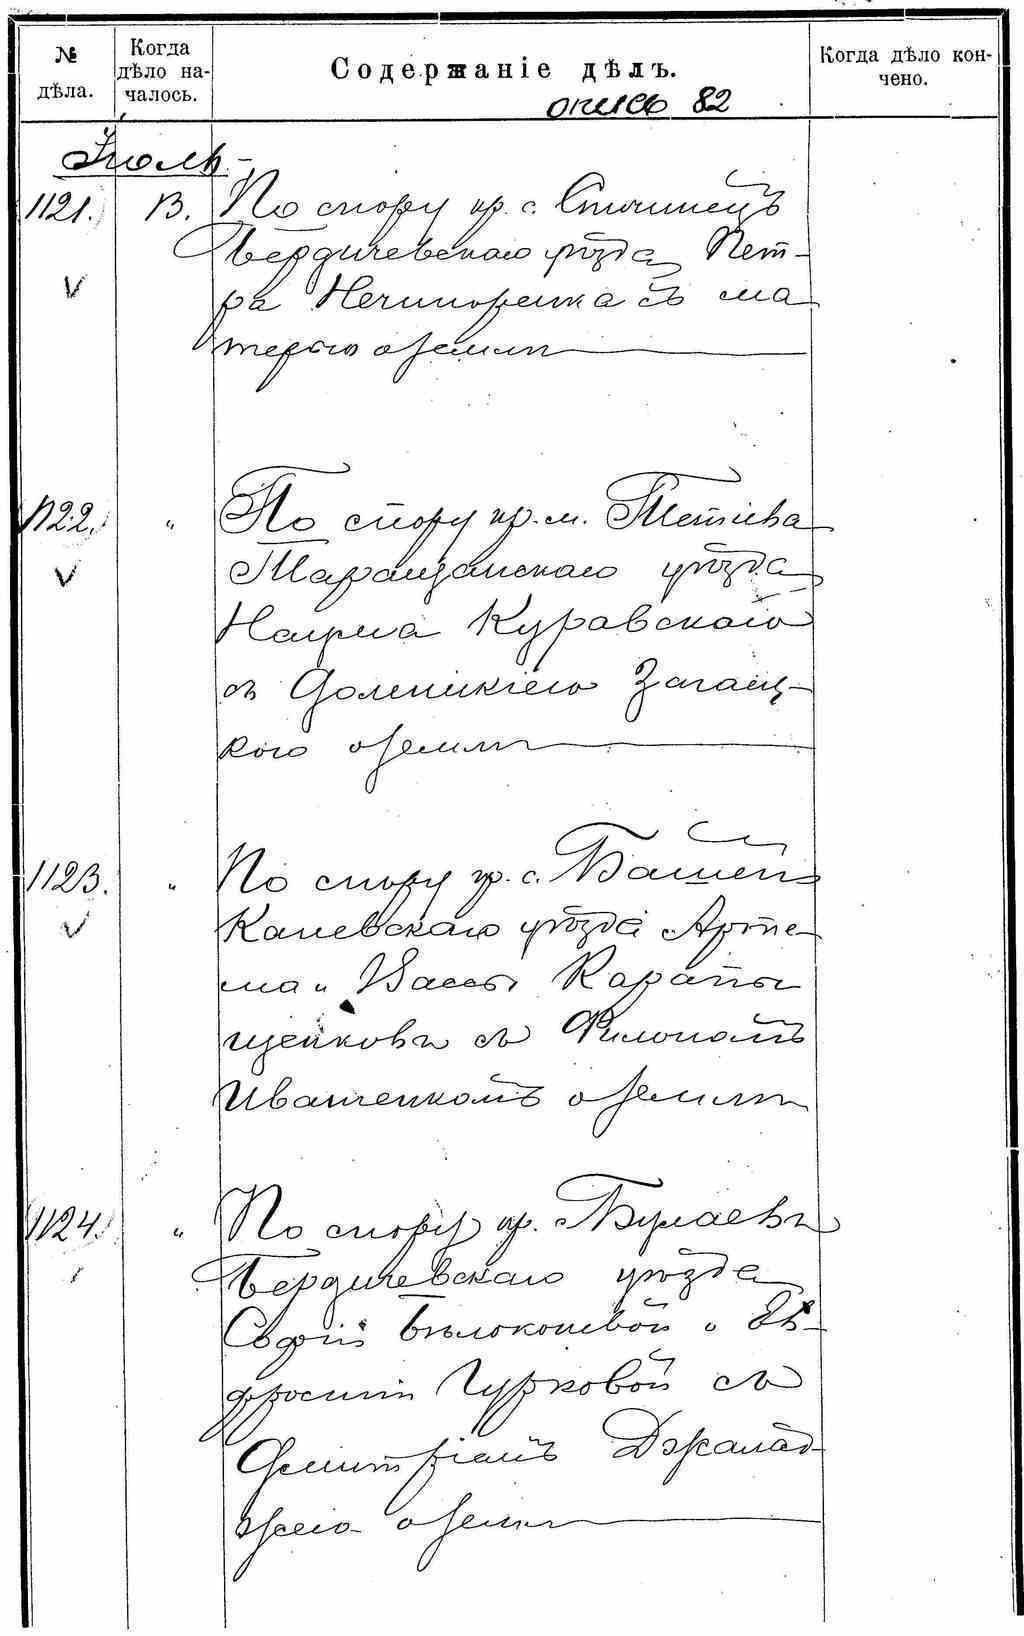 № дѣла.
Когда дѣло на-чалось.
Содержаніе дѣлъ.
Когда дѣло кон-чено.
опись 82
Іюль
1121. 13. По спору кр. с.
Бердичевскаго уѣзда Пет-
ра Нечипоренка съ ма
терью о землѣ
1122. " По спору кр. м. Тетіева
Таращанскаго уѣзда
Наума Куравскаго
съ Домникіею Загаец-
кою о землѣ
1123. " По спору кр. с.
Каневскаго уѣзда Арте-
ма и Вассы Карапы
щенковъ съ Филономъ
Иващенкомъ о землѣ
1124. " По спору кр. с. Булаевъ
Бердичевскаго уѣзда
Софіи Бѣлоконевой и Ев-
фросиніи Чурковой съ
Дмитріемъ
о землѣ